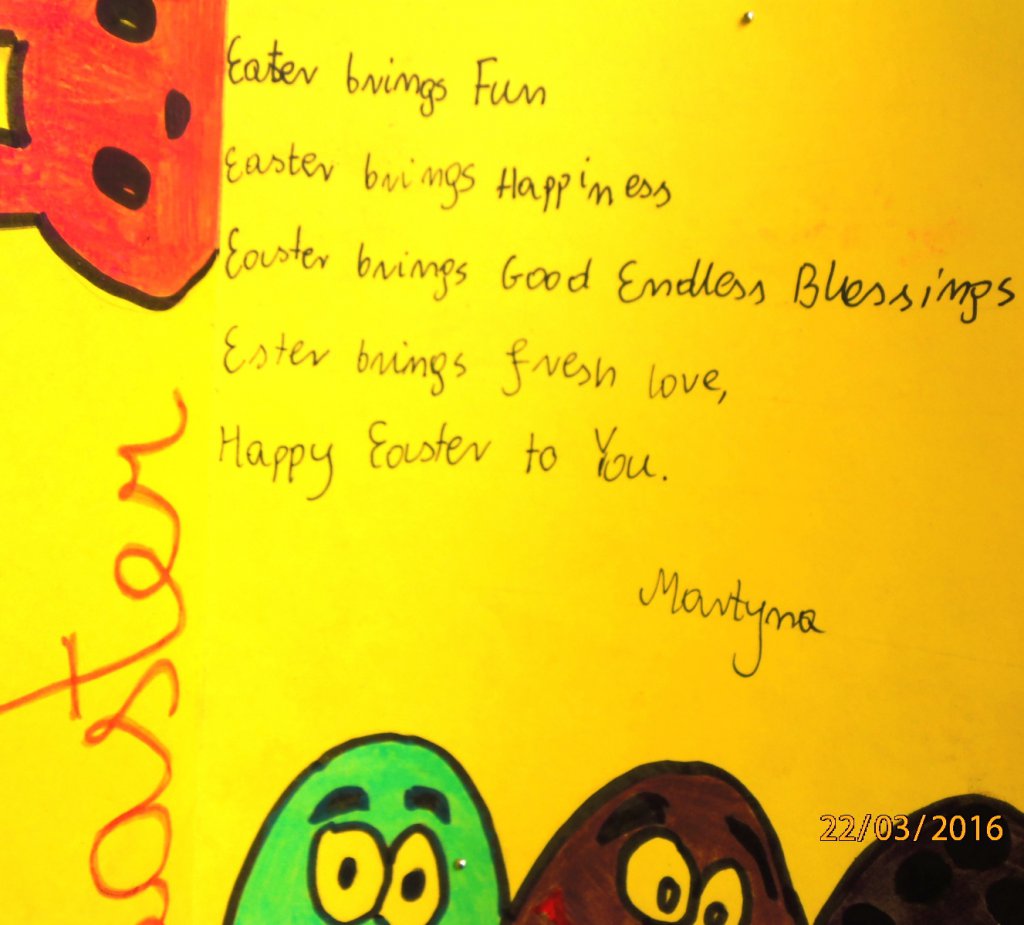 Eater brings Fun
Easter brings Happiness
Easter brings Good Endless Blessings
Ester brings fresh love,
Happy Easter to You.
Martyna
aster
22/03/2016